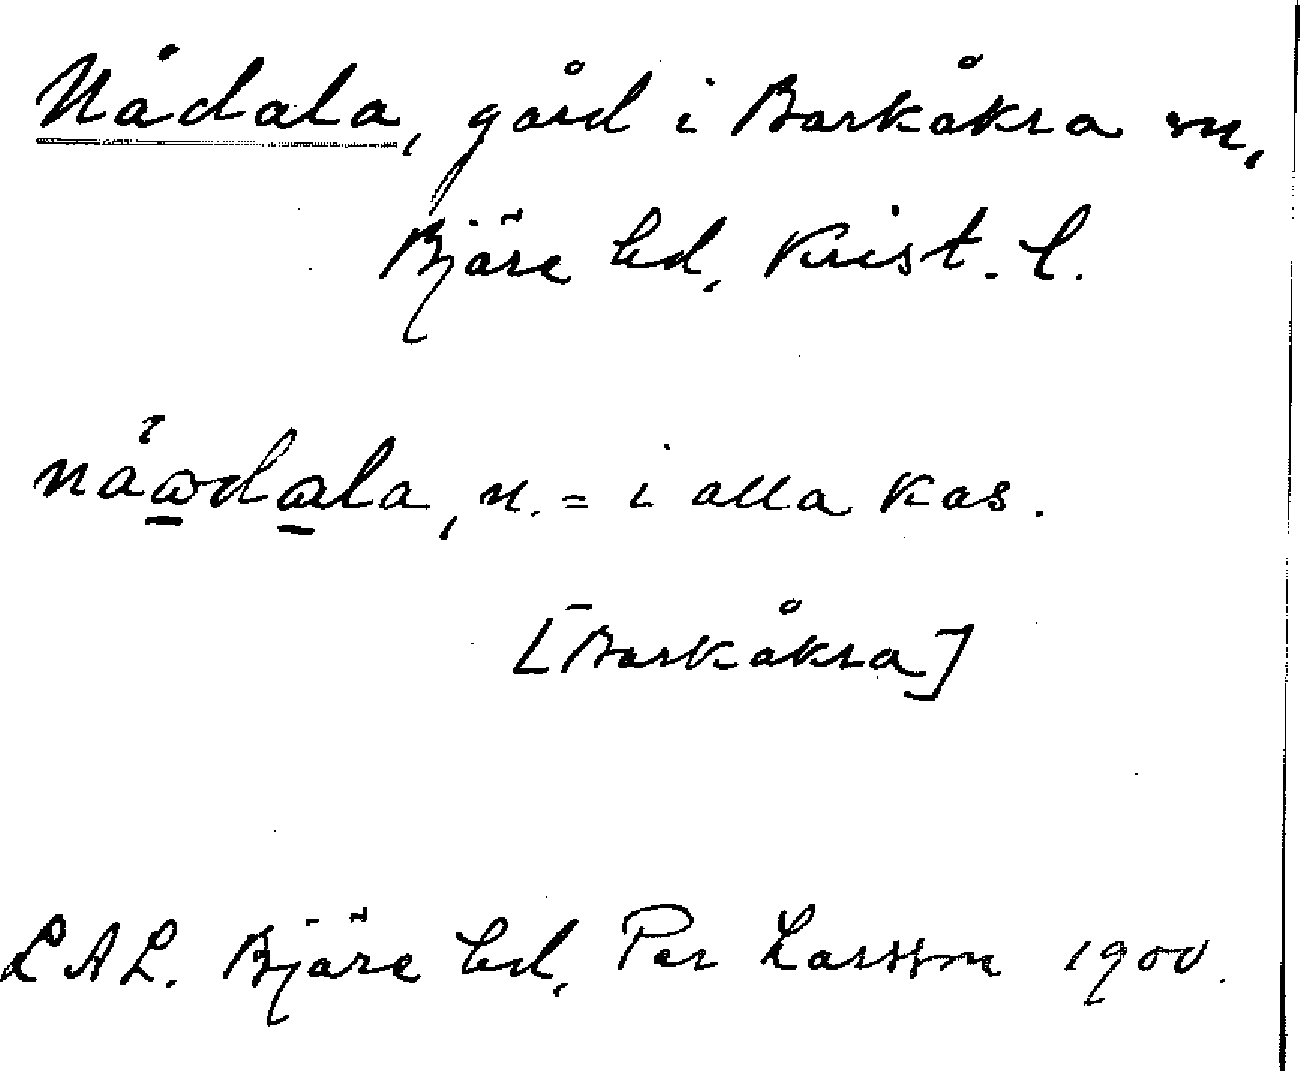 Nådala, gård i Barkåkra sn,
Bjäre hd, Krist. l.
n. = i alla kas.
[Barkåkra]
LAL. Bjäre hd, Per Larsson 1900.